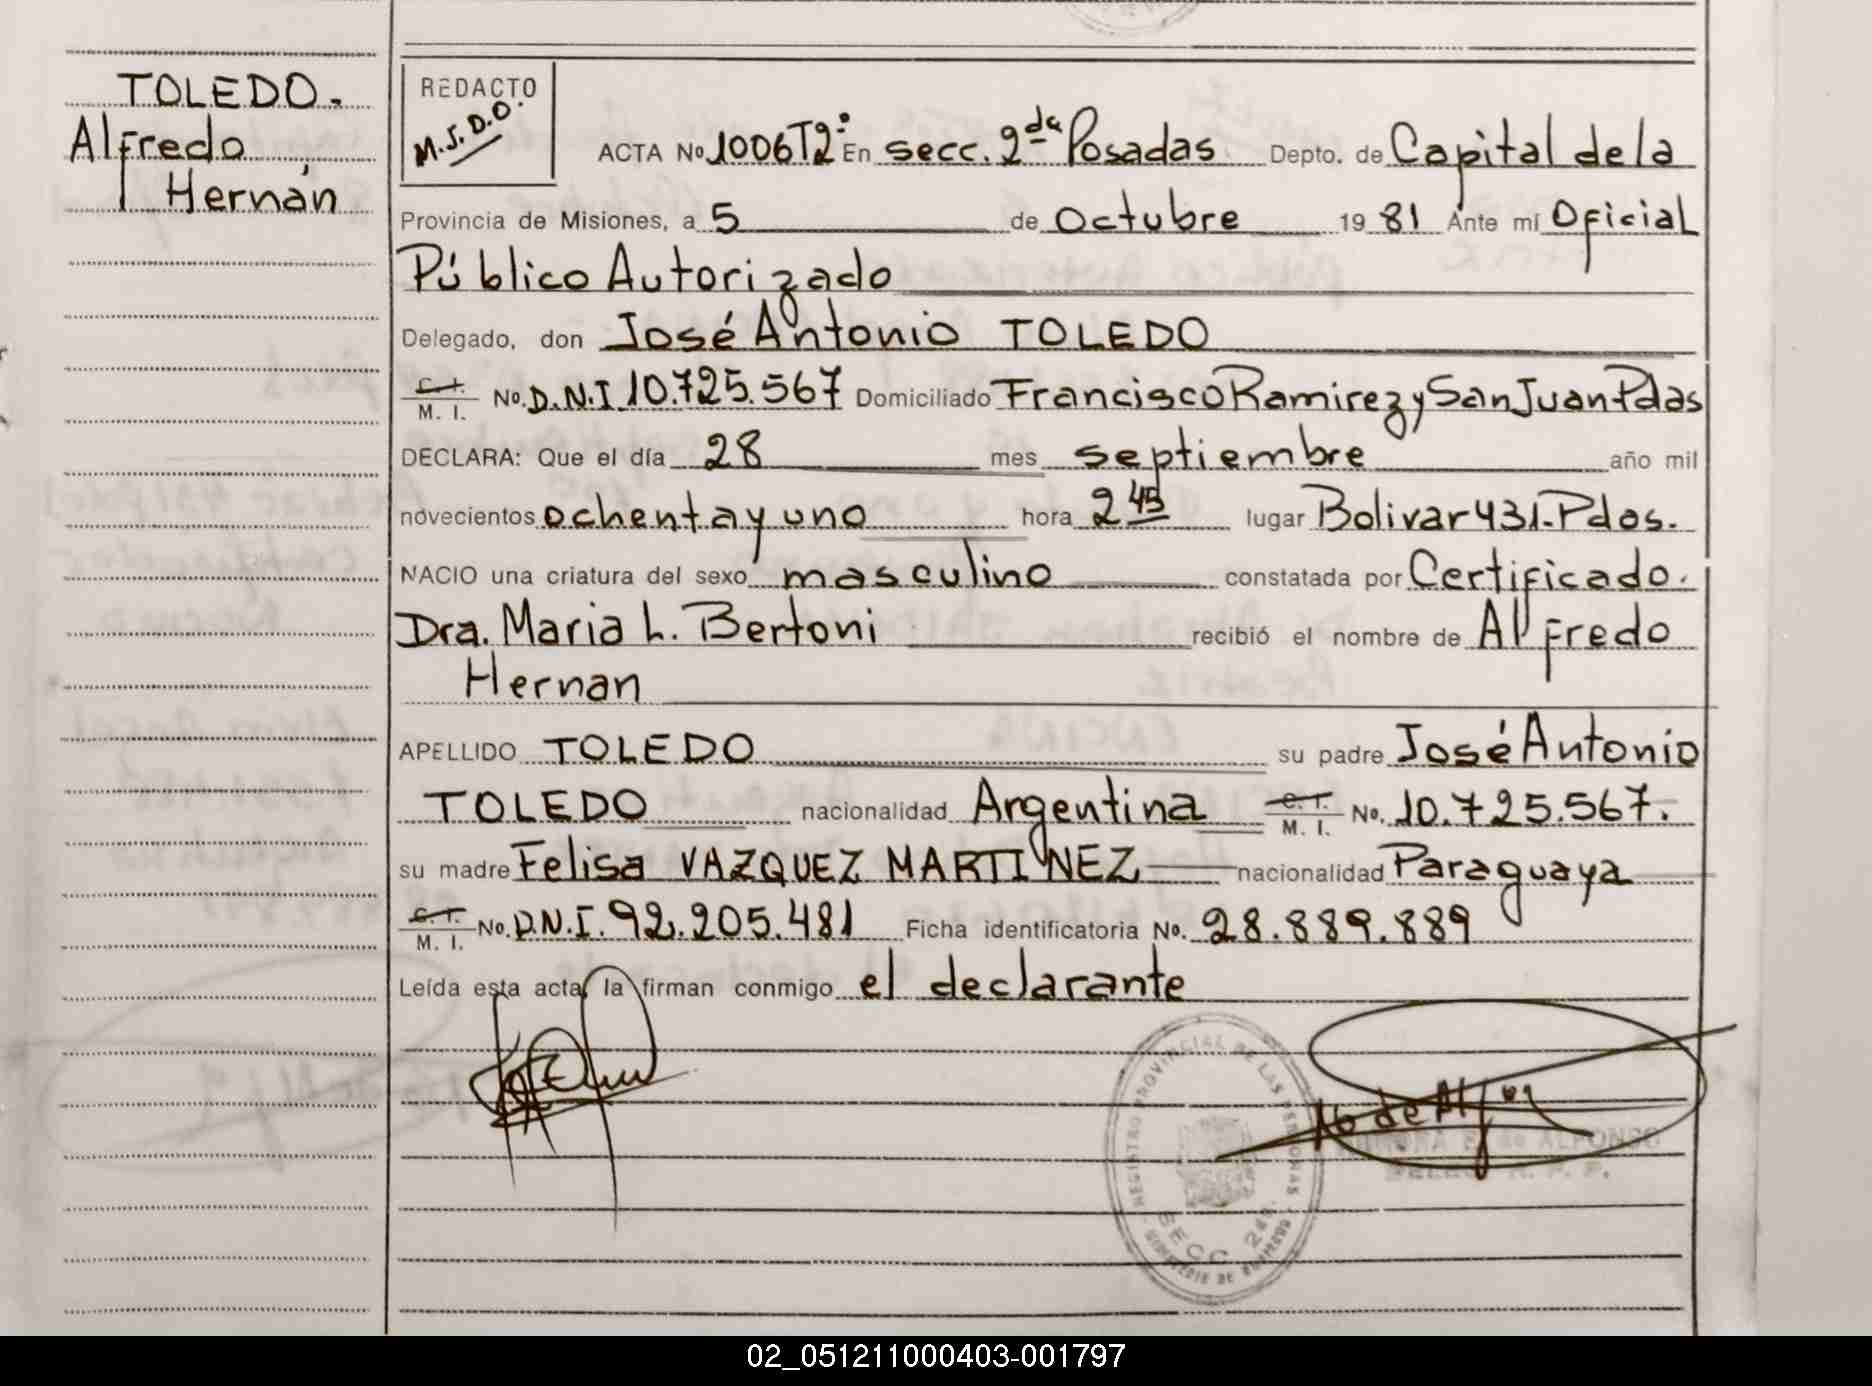 TOLEDO.
Alfredo
Hernán
REDACTO
M.S.D.O.
ACTA No 1006T2° En secc. 2da Posadas Depto. de Capital de la
Provincia de Misiones, a 5 de octubre 19 81 Ante mí Oficial
Público Autorizado
Delegado, don José Antonio TOLEDO
C.I. M. I. No. D.N.I 10.725.567 Domiciliado Francisco Ramirez y San Juan Pdas
DECLARA: Que el día 28 mes septiembre año mil
novecientos ochenta y uno hora 2 45 lugar Bolivar 431. Pdas.
NACIO una criatura del sexo masculino constatada por Certificado.
Dra. Maria L. Bertoni recibió el nombre de Alfredo
Hernan
APELLIDO TOLEDO su padre José Antonio
TOLEDO nacionalidad Argentina C.I. M. I. No. 10.725.567.
su madre Felisa VAZQUEZ MARTINEZ nacionalidad Paraguaya
C.I. M. I. No. D.N.I. 92.205.481 Ficha identificatoria No. 28.889.889
Leída esta acta, la firman conmigo el declarante
REGISTRO PROVINCIAL DE LAS PERSONAS
SECC. 2da.
de ALFONSO
02_051211000403-001797